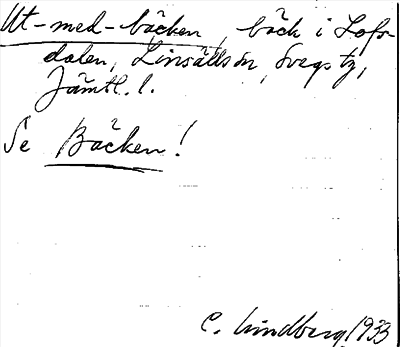 Ut-med-bäcken, bäck i Lofs-
dalen, Linsälls sn, Svegs tg,
Jämtl. l.
Se Bäcken!
C. Lindberg 1933